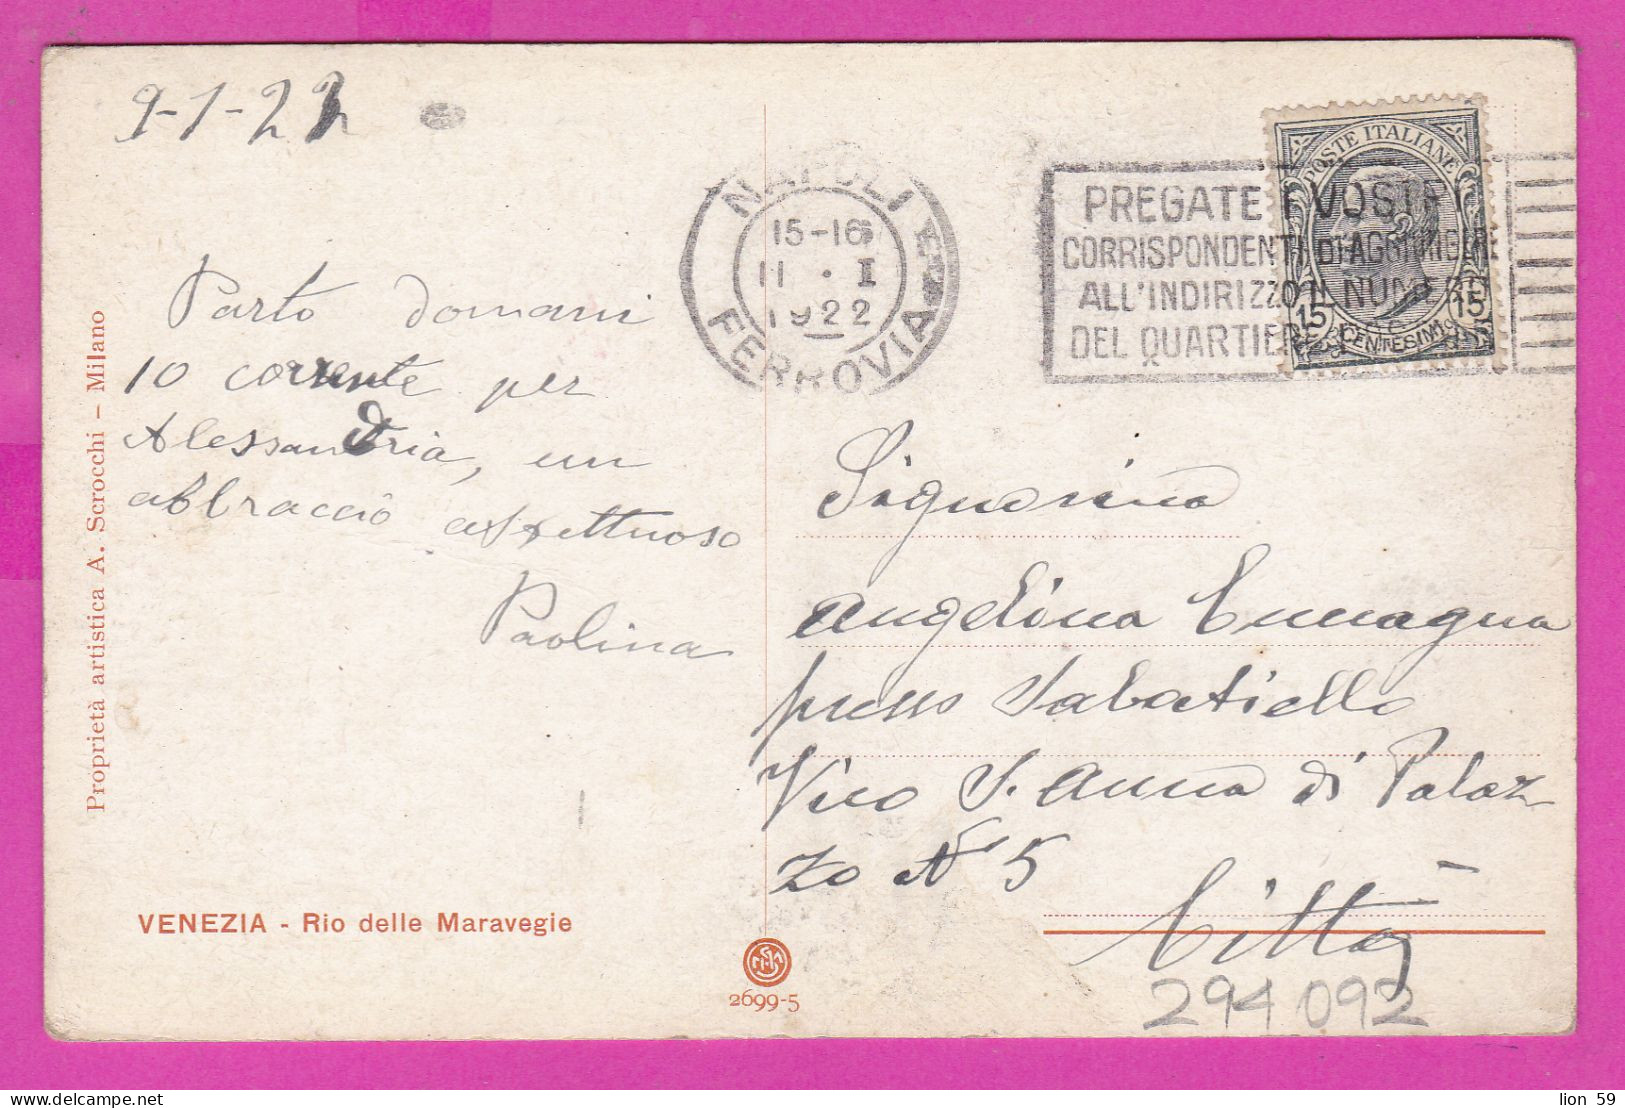 9-1-22
Parto domani
10 corrente per
Alessandria, un
abbraccio affettuoso
Paolina
Proprietà artistica A. Scrocchi – Milano
VENEZIA - Rio delle Maravegie
2699-5
NAPOLI
15-16
11 . I
1922
FERROVIA
PREGATE I VOSTRI
CORRISPONDENTI DI AGGIUNGERE
ALL'INDIRIZZO IL NUMERO
DEL QUARTIERE
POSTE ITALIANE
15 15
CENTESIMI
Signorina
Angelina
presso Sabatiello
Vico S. Anna di Palaz
zo N° 5
Città
294 092
lion 59
delcampe.net